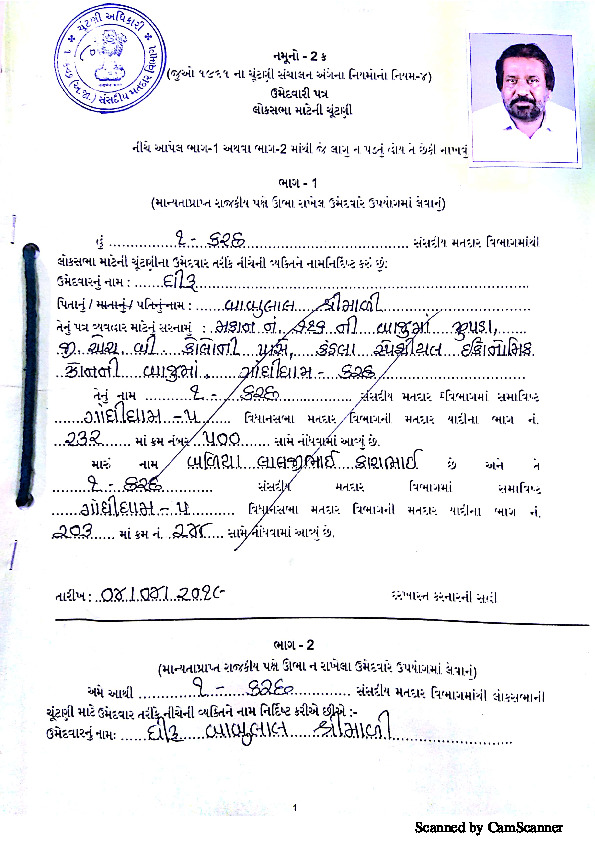 ચૂંટણી અધિકારી
૧ કચ્છ (અ.જા.) સંસદીય મતદાર વિભાગ
નમૂનો - 2 ક
(જુઓ ૧૯૬૧ ના ચૂંટણી સંચાલન અંગેના નિયમોના નિયમ-૪)
ઉમેદવારી પત્ર
લોકસભા માટેની ચૂંટણી
નીચે આપેલ ભાગ-1 અથવા ભાગ-2 માંથી જે લાગુ ન પડતું હોય તે છેકી નાખવું
ભાગ - 1
(માન્યતાપ્રાપ્ત રાજકીય પક્ષે ઊભા રાખેલ ઉમેદવારે ઉપયોગમાં લેવાનું)
હું ૧ - કચ્છ સંસદીય મતદાર વિભાગમાંથી
લોકસભા માટેની ચૂંટણીના ઉમેદવાર તરીકે નીચેની વ્યક્તિને નામનિર્દિષ્ટ કરું છું:
ઉમેદવારનું નામ : ધીરૂ
પિતાનું / માતાનું / પતિનું નામ : બાબુલાલ શ્રીમાળી
તેનું પત્ર વ્યવહાર માટેનું સરનામું : મકાન નં. ની બાજુમાં ઝુપડા,
જી. એચ. બી. કોલોની પાસે, કંડલા સ્પેશીયલ ઈકોનોમિક
ઝોનની બાજુમાં, ગાંધીધામ - કચ્છ
તેનું નામ ૧ - કચ્છ સંસદીય મતદાર વિભાગમાં સમાવિષ્ટ
ગાંધીધામ - ૫ વિધાનસભા મતદાર વિભાગની મતદાર યાદીના ભાગ નં.
૨૩૨ માં ક્રમ નંબર ૫૦૦ સામે નોંધવામાં આવ્યું છે.
મારું નામ લાલજીભાઈ કારાભાઈ છે અને તે
૧ - કચ્છ સંસદીય મતદાર વિભાગમાં સમાવિષ્ટ
ગાંધીધામ - ૫ વિધાનસભા મતદાર વિભાગની મતદાર યાદીના ભાગ નં.
૨૦૩ માં ક્રમ નં. ૨૭૪ સામે નોંધવામાં આવ્યું છે.
તારીખ : ૦૪/૦૪/૨૦૧૯ દરખાસ્ત કરનારની સહી
ભાગ - 2
(માન્યતાપ્રાપ્ત રાજકીય પક્ષે ઊભા ન રાખેલા ઉમેદવારે ઉપયોગમાં લેવાનું)
અમે આથી ૧ - કચ્છ સંસદીય મતદાર વિભાગમાંથી લોકસભાની
ચૂંટણી માટે ઉમેદવાર તરીકે નીચેની વ્યક્તિને નામ નિર્દિષ્ટ કરીએ છીએ :-
ઉમેદવારનું નામ: ધીરૂ બાબુલાલ શ્રીમાળી
1
Scanned by CamScanner